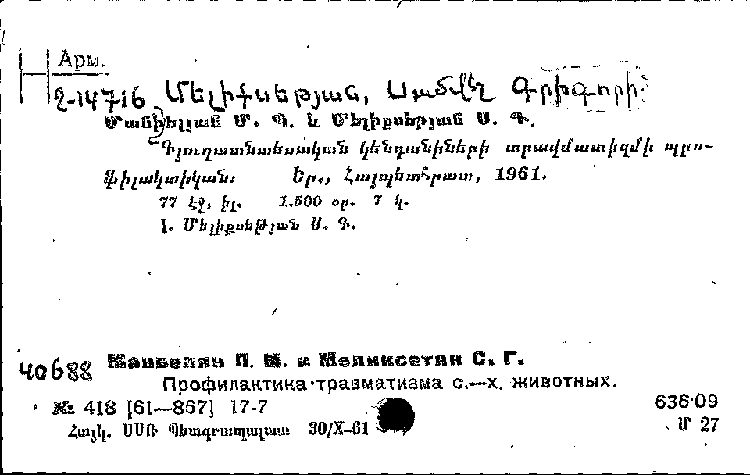 Арм.
2-14716 Մելիքսեթյան, Սամվել Գրիգորի
Մանվելյան Մ. Պ. և Մելիքսեթյան Ս. Գ.
Գյուղատնտեսական կենդանիների տրավմատիզմի պրո-
ֆիլակտիկան: Եր., Հայպետհրատ, 1961.
77 էջ, իլ. 1.500 օր. 7 կ.
I. Մելիքսեթյան Ս. Գ.
40688 Манвелян П. М. и Меликсетян С. Г.
Профилактика травматизма с.-х. животных.
№ 418 [61—867] 17-7 636·09
Հայկ. ՍՍՌ Պետգրապալատ 30/X-61 Մ 27